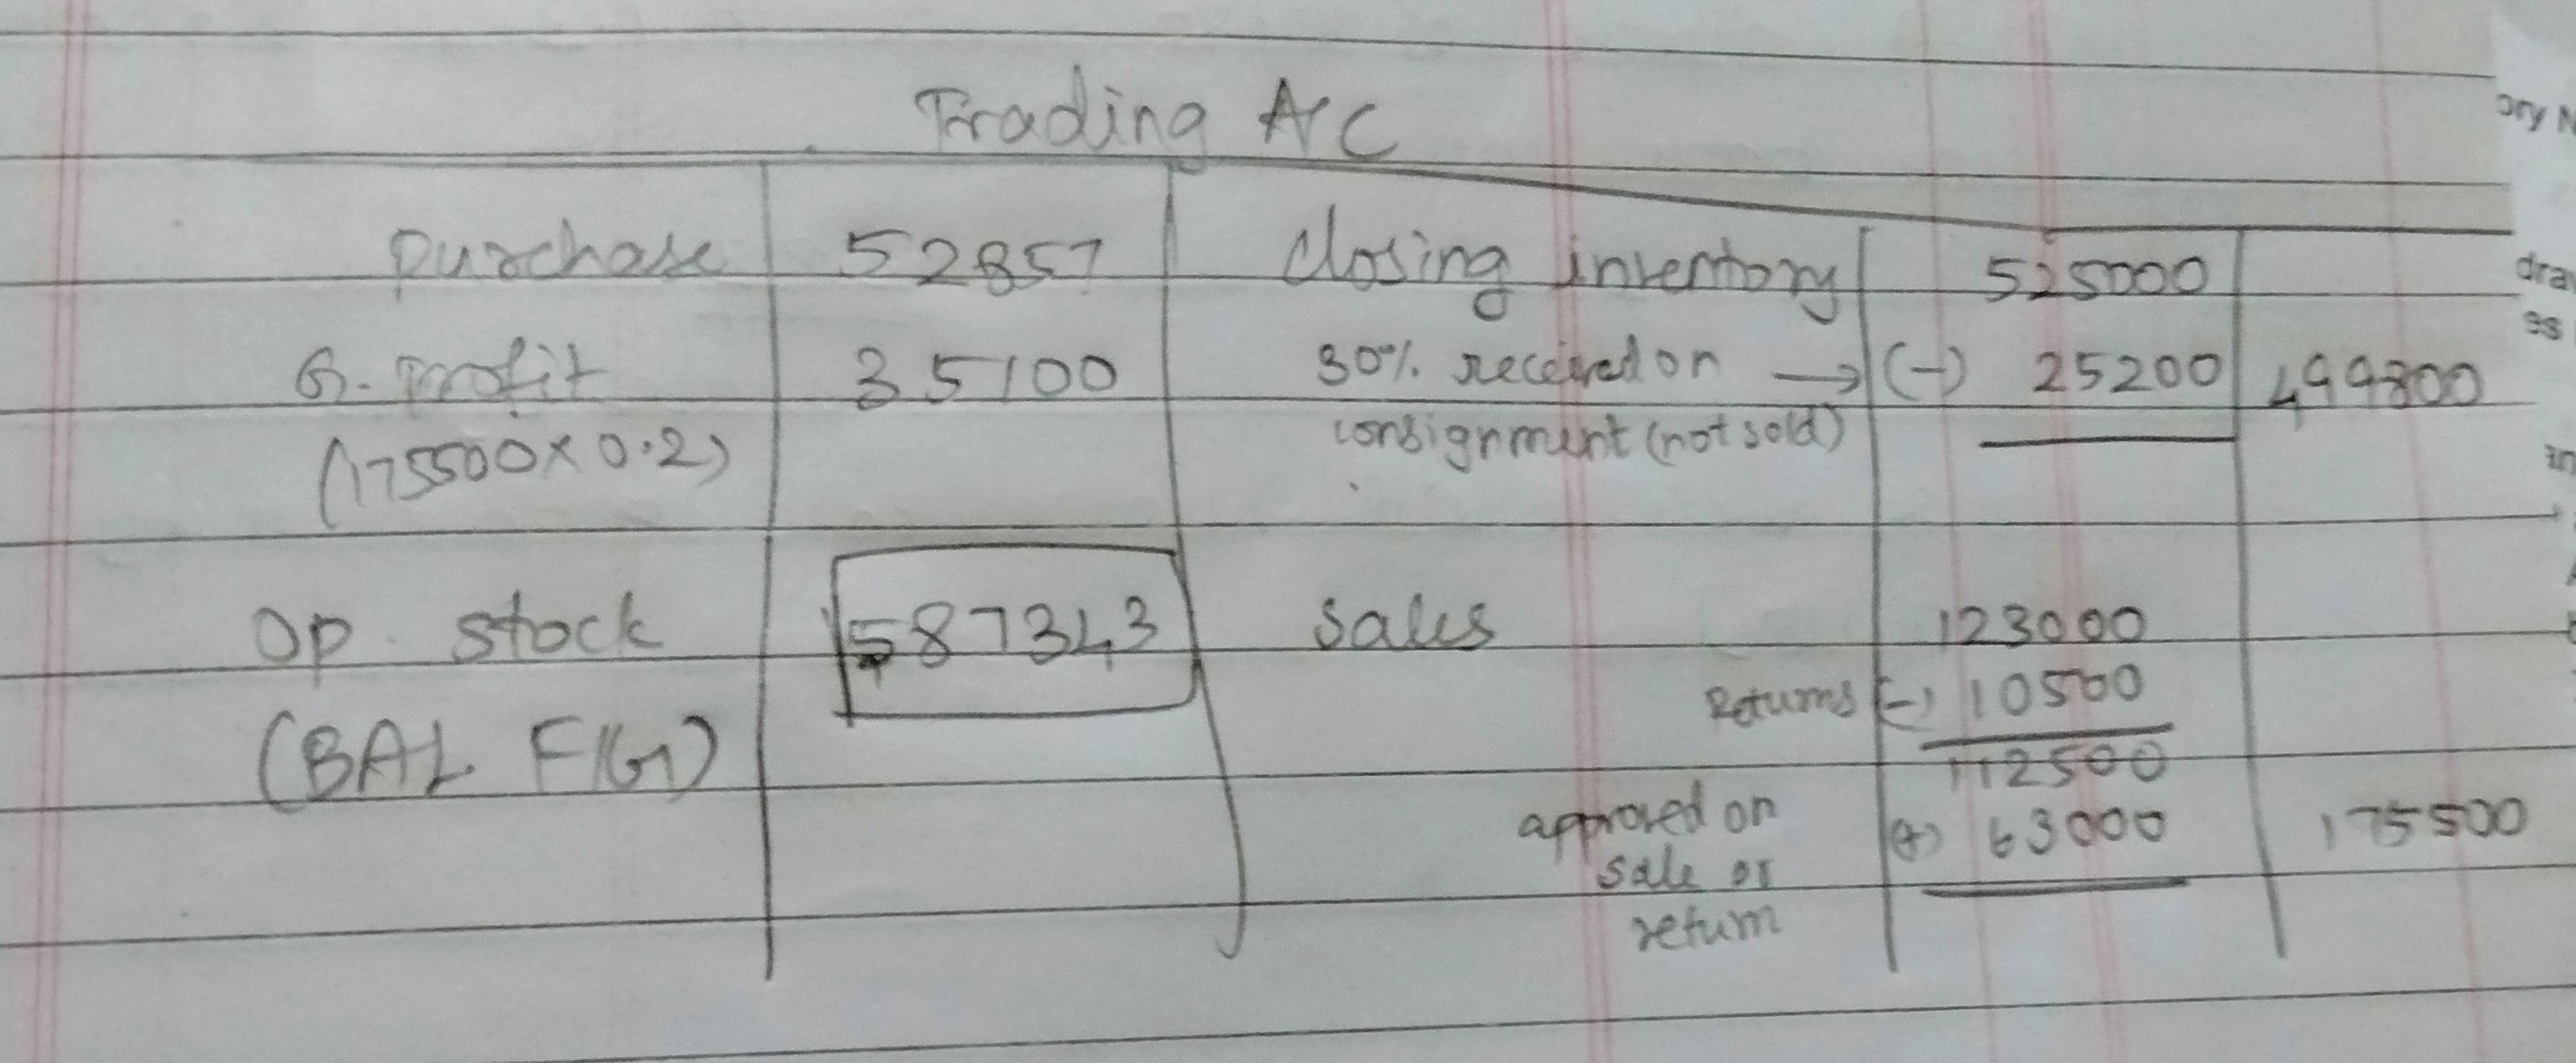 Trading A/C
purchase 52857 Closing inventory 525000
G. profit 35100 30% received on → (-) 25200 499800
(175500 x 0.2) consignment (not sold)
Op. stock 587343 Sales 123000
(BAL FIG) Returns (-) 10500
112500
approved on (+) 63000 175500
sale or
return
ory
dra
es